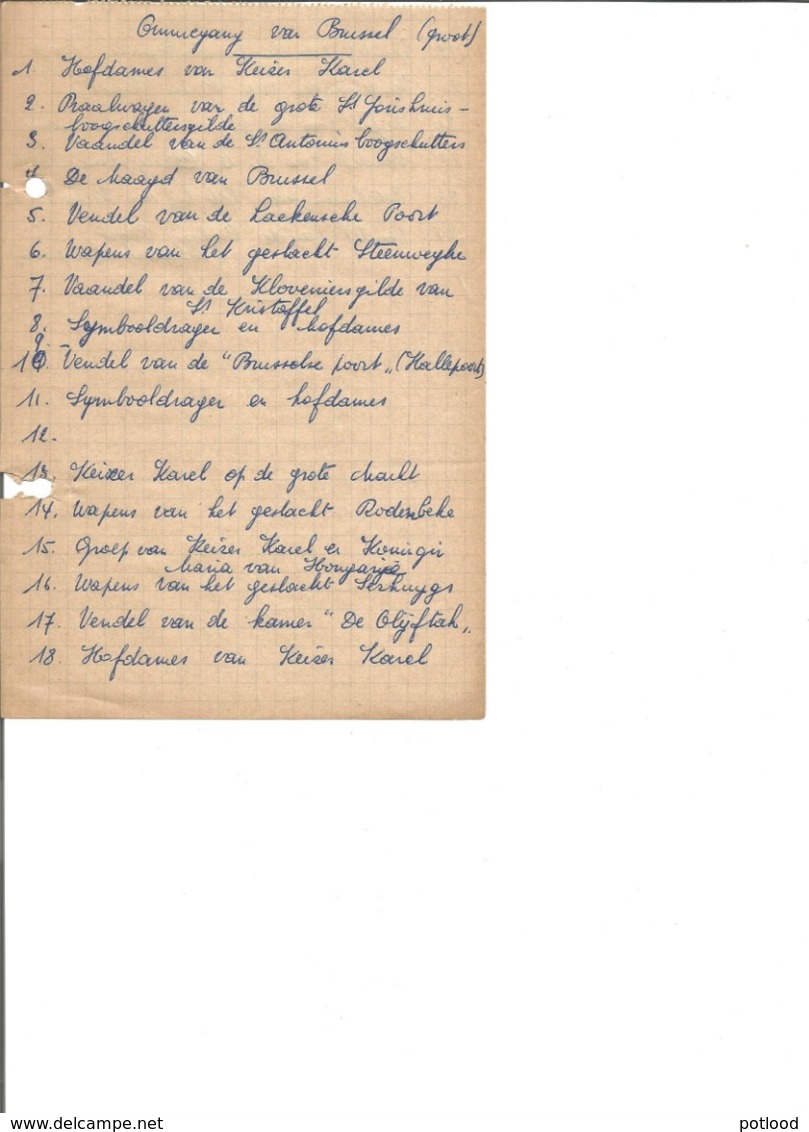 Ommegang van Brussel (groot)
1. Hofdames van Keizer Karel
2. Praalwagen van de grote St Jorishuis-
boogschuttersgilde
3. Vaandel van de St Antonius boogschutters
4. De Maagd van Brussel
5. Vendel van de Laekensche Poort
6. Wapens van het geslacht Steenweghe
7. Vaandel van de Kloveniersgilde van
St Kristoffel
8. Symbooldrager en hofdames
9.
10. Vendel van de "Brusselse poort„ (Hallepoort)
11. Symbooldrager en hofdames
12.
13. Keizer Karel op de grote Markt
14. Wapens van het geslacht Rodenbeke
15. Groep van Keizer Karel en Koningin
Maria van Hongarije
16. Wapens van het geslacht Serhuygs
17. Vendel van de kamer "De Olijftak„
18. Hofdames van Keizer Karel
www.delcampe.net
potlood